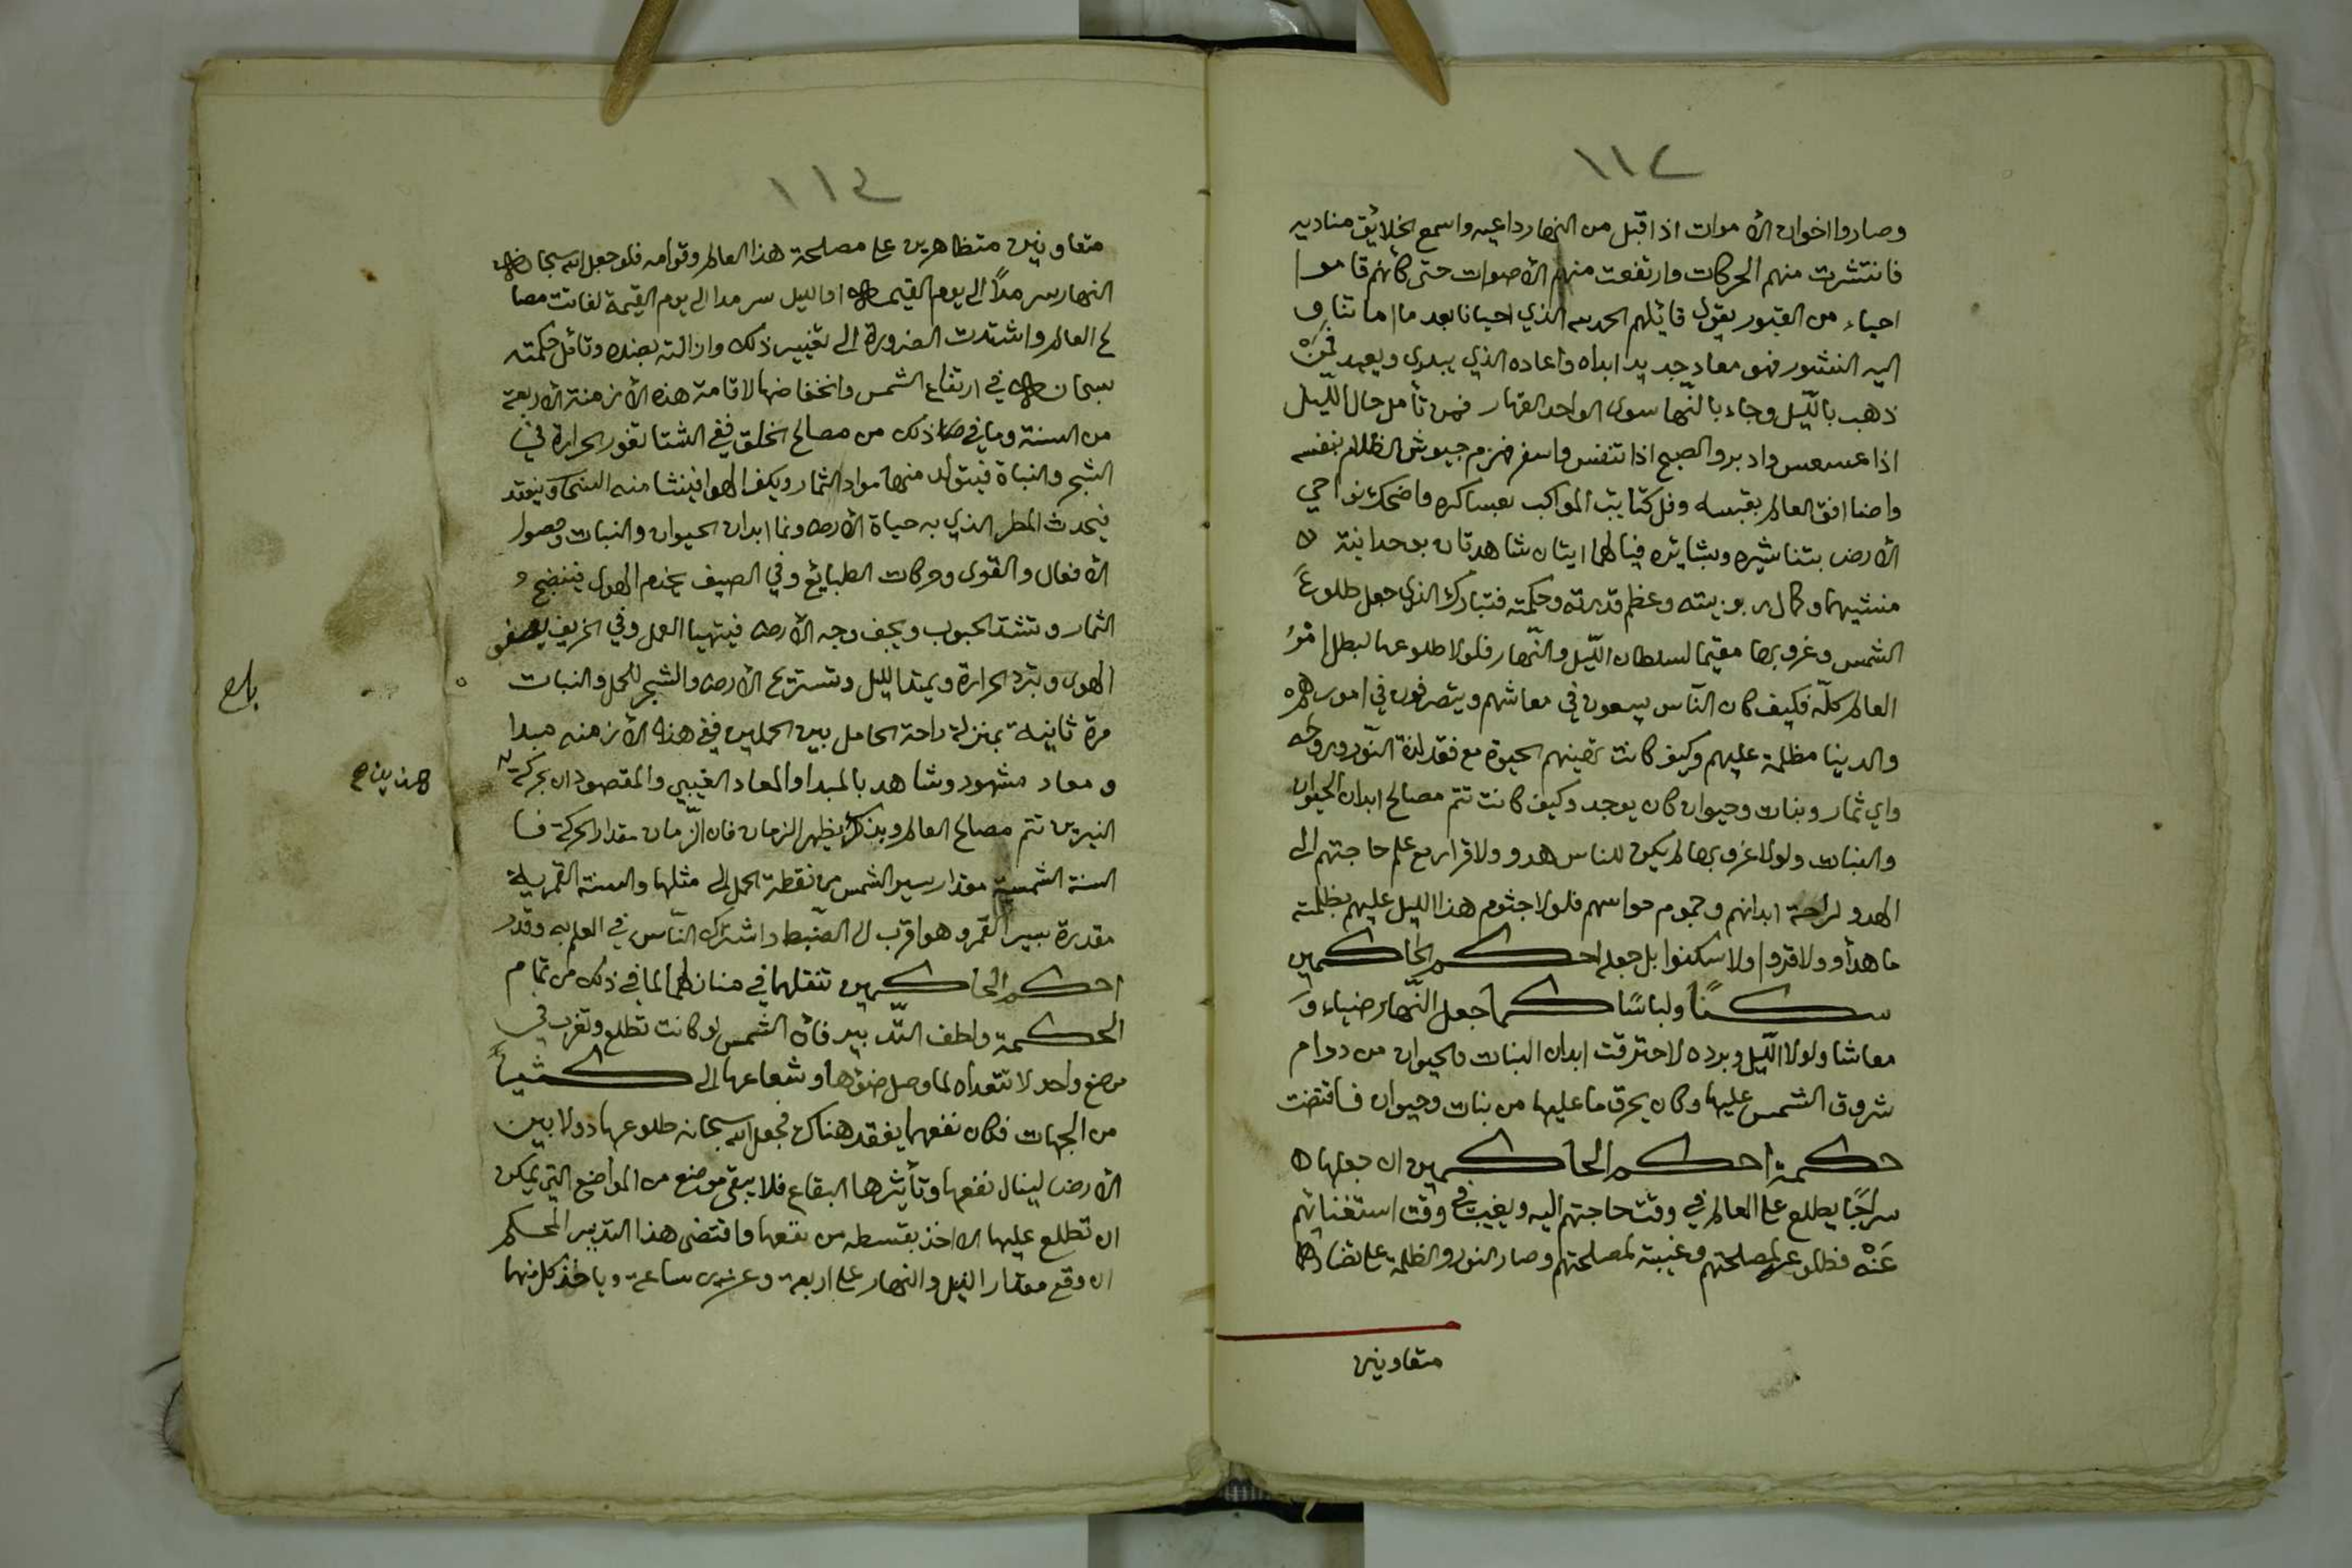 ١١٢
وصاروا اخوان الأموات اذا اقبل من النهار داعيه واسمع الخلايق مناديه
فانتشرت منهم الحركات وارتفعت منهم الأصوات حتى كأنهم قاموا
احياء من القبور يقول قايلهم الحمد لله الذي احيانا بعد ما اماتنا و
اليه النشور فهو معاد جديد ابداه واعاده الذي يبدى ويعيد فمن
ذهب بالليل وجاء بالنها سوى الواحد القهار فمن تأمل حال الليل
اذا عسعس وادبر والصبح اذا تنفس واسفر فهزم جيوش الظلام بنفسه
واضا افق العالم بقبسه وفل كتايب المواكب بعساكره واضحك نواحي
الأرض بتباشيره وبشائره فيالهما ايتان شاهدتان بوحدانية
منشيهما وكمال ربوبيته وعظم قدرته وحكمته فتبارك الذى جعل طلوع
الشمس وغروبها مقيما لسلطان الليل والنهار فلولا طلوعها لبطل امر
العالم كله فكيف كان الناس يسعون في معاشهم ويتصرفون في امورهم
والدينا مظلمة عليهم وكيف كانت تهنيهم الحيوة مع فقد لذة النور وروحه
واي ثمار ونبات وحيوان كان يوجد وكيف كانت تتم مصالح ابدان الحيوان
والنبات ولولا غروبها لم يكن للناس هدو ولا قرار مع علم حاجتهم الى
الهدو لراحة ابدانهم وجموم حواسهم فلولا جثوم هذا الليل عليهم بظلمته
ما هدأو ولا قروا ولا سكنوا بل جعله احكم الحاكمين
سكنًا ولباسًا كما جعل النهار ضياء و
معاشا ولولا الليل وبرده لاحترقت ابدان النبات والحيوان من دوام
شروق الشمس عليها وكان يحرق ما عليها من نبات وحيوان فاقتضت
حكمة احكم الحاكمين ان جعلها
سراجًا يطلع على العالم في وقت حاجتهم اليه ويغيب في وقت استغنائهم
عنه فطلوعه لمصلحتهم وغيبته لمصلحتهم وصار النور والظلمة على تضادها
متعاونين
١١٣
متعاونين متظاهرين على مصلحة هذا العالم وقوامه فلو جعل الله سبحانه
النهار سرمدًا الى يوم القيمه او الليل سرمدا الى يوم القيمة لفاتت مصا
لح العالم واشتدت الضرورة الى تغيير ذلك وازالته بضده وتأمل حكمته
سبحانه في ارتفاع الشمس وانخفاضها لاقامة هذه الأزمنة الأربعة
من السنة وما في ذلك من مصالح الخلق ففي الشتا تغور الحرارة في
الشجر والنباة فيتولد منها مواد الثمار ويكثف الهوا فينشا منه السحاب وينعقد
فيحدث المطر الذي به حياة الأرض ونما ابدان الحيوان والنبات وحصول
الأفعال والقوى وحركات الطبايع وفي الصيف يخدم الهوى فينضج و
الثمار وتشتد الحبوب ويجف وجه الأرض فيتهيا العمل وفي الخريف يصفو
الهوى وتبرد الحرارة ويمتد الليل وتستريح الأرض والشجر للحمل والنبات
مرة ثانية بمنزلة راحة الحامل بين الحملين ففي هذه الأزمنه مبدا
ومعاد مشهود وشاهد بالمبدا والمعاد الغيبي والمقصود ان بحركة
هذين
النيرين تتم مصالح العالم وبذلك يظهر الزمان فان الزمان مقدار الحركة فا
السنة الشمسية مقدار سير الشمس من نقطة الحمل الى مثلها والسنة القمرية
مقدرة بسير القمر وهو اقرب الى الضبط واشترك الناس في العلم به وقدر
احكم الحاكمين تنقلهما في منازلهما لما في ذلك من تمام
الحكمة ولطف التدبير فأن الشمس لو كانت تطلع وتغرب في
موضع واحد لا تتعداه لما وصل ضوها وشعاعها الى كثير
من الجهات فكان نفعها يفقد هناك فجعل الله سبحانه طلوعها دولا بين
الأرض لينال نفعها وتأثيرها البقاع فلا يبقى موضع من المواضع التي يمكن
ان تطلع عليها الا اخذ بقسطه من نفعها واقتضى هذا التدبير المحكم
ان وقع مقدار الليل والنهار على اربعة وعشرين ساعة وياخذ كل منهما